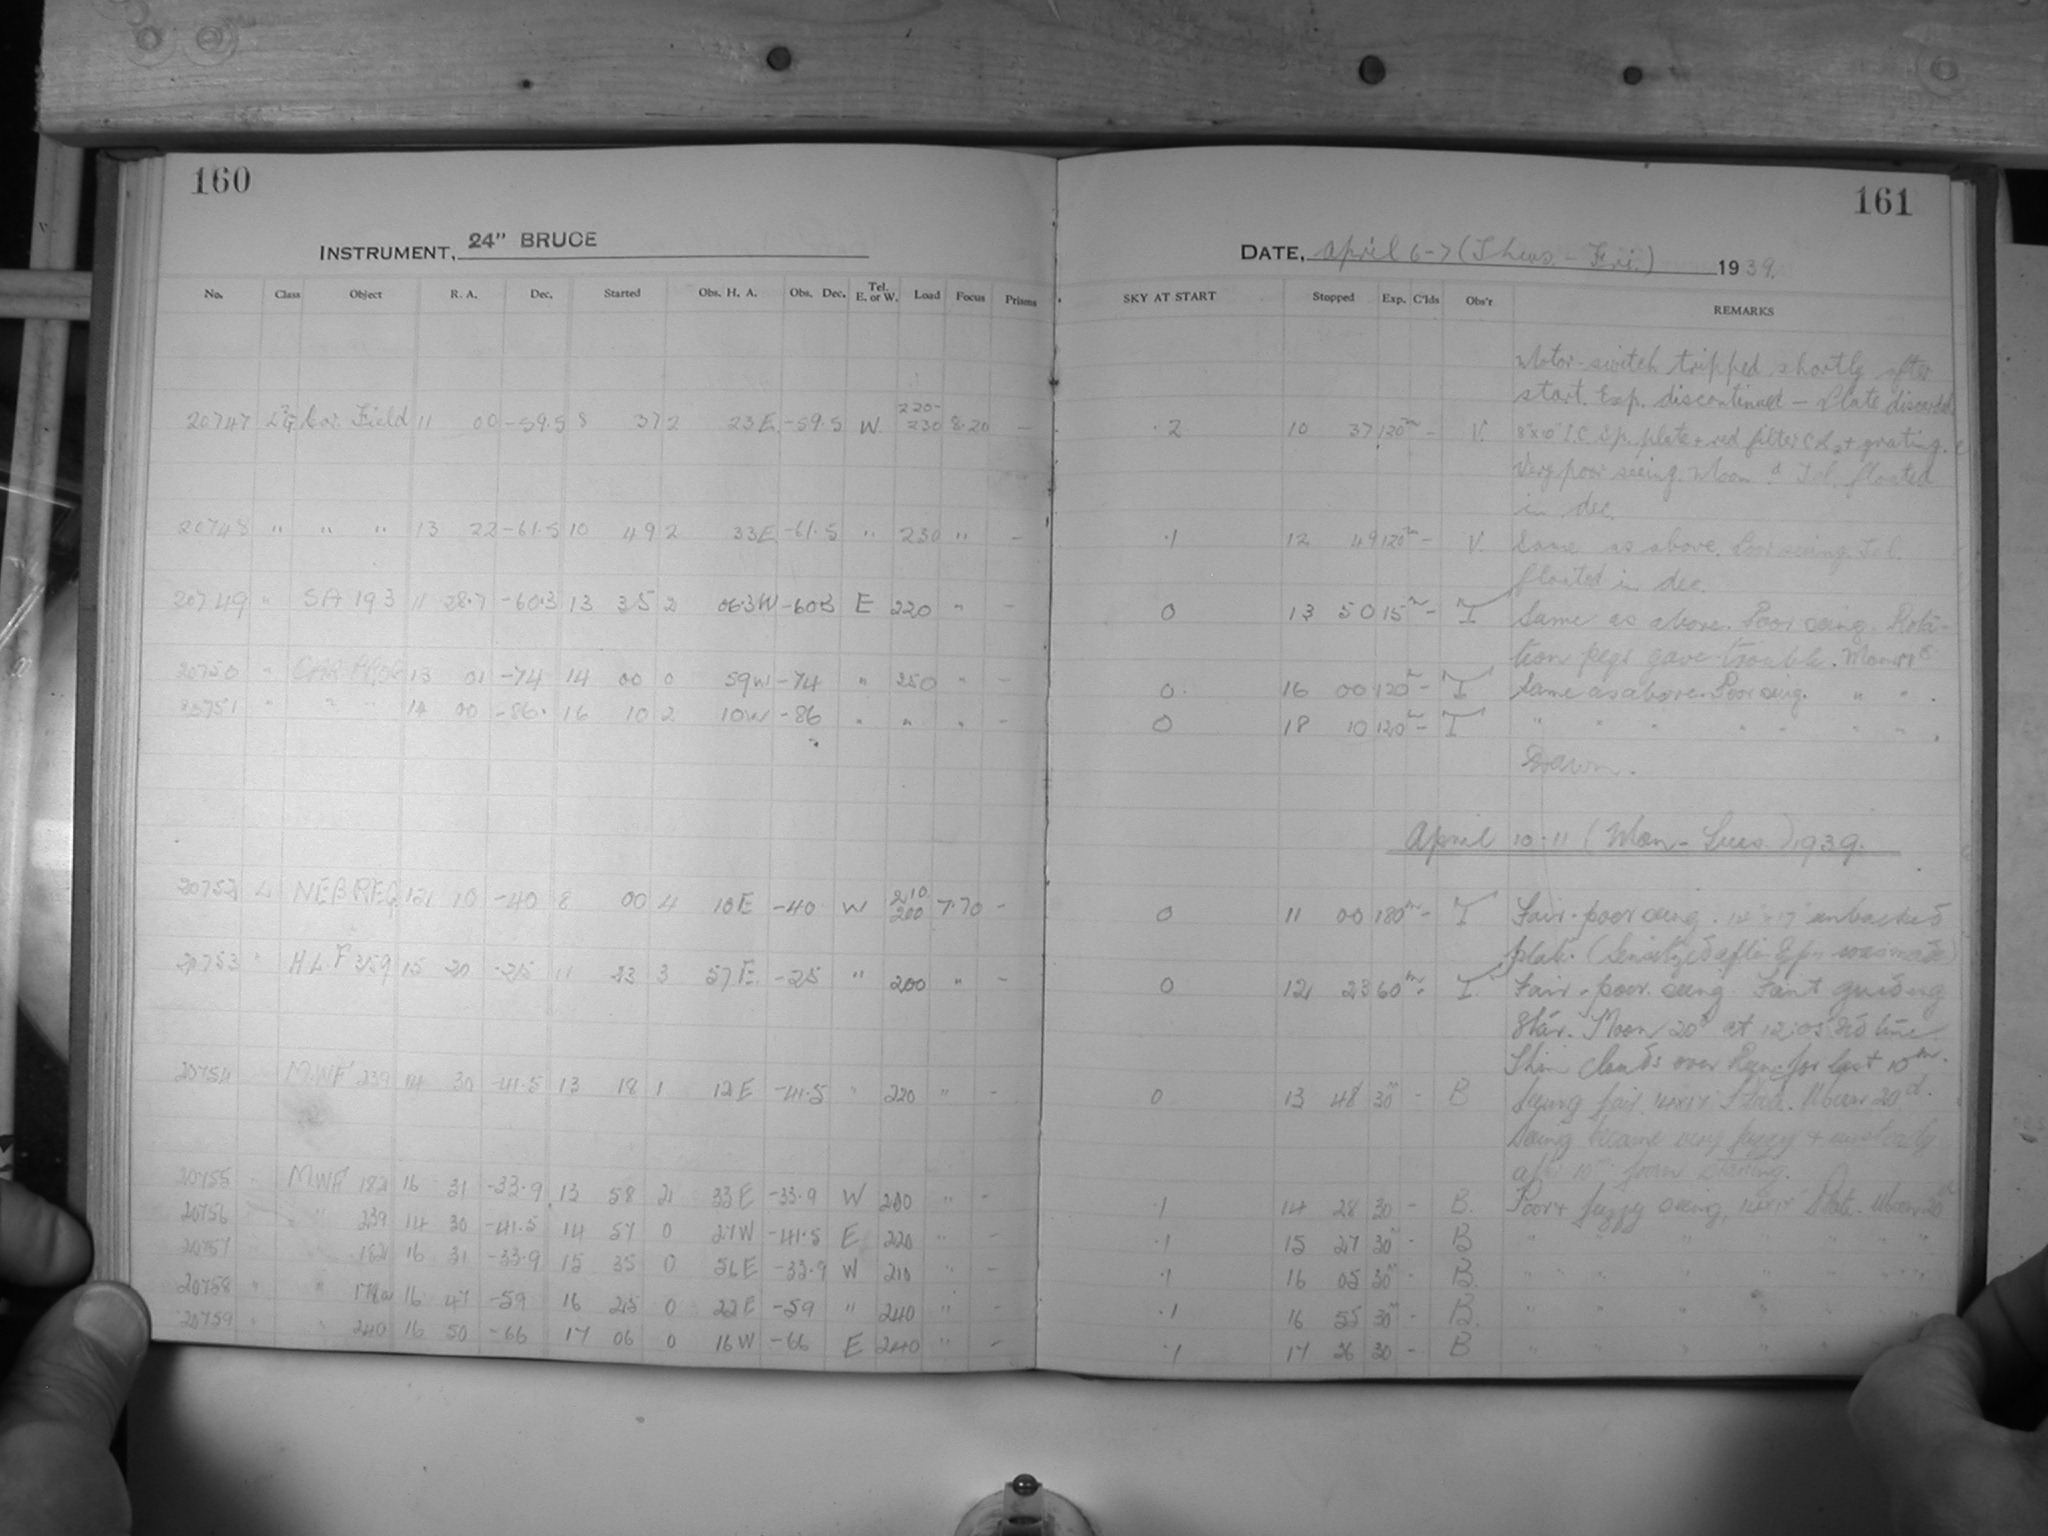 160
161
INSTRUMENT, 24" BRUCE
DATE, April 6-7 (Thurs. - Fri.) 1939.
No. Class Object R. A. Dec. Started Obs. H. A. Obs. Dec. Tel. E. or W. Load Focus Prisms
SKY AT START Stopped Exp. C'lds Obs'r REMARKS
Motor-switch tripped shortly after
start. Exp. discontinued - Plate discarded
20747 Car. Field 11 00 -59.5 8 37 2 23E -59.5 W. 220- 230 8.20 -
.2 10 37 120m - V. 8"x10" I.C. plate + red filter + grating.
Very poor seeing. Moon Tel. floated
in dec.
20748 " " " 13 22 -61.5 10 49 2 33E -61.5 " 230 " -
.1 12 49 120m - V. Same as above. Poor seeing. Tel.
floated in dec.
20749 " SA 193 11 28.7 -60.3 13 35 2 06.3W -60.3 E 220 " -
0 13 50 15m - T Same as above. Poor seeing. Rota-
tion pegs gave trouble.
20750 " 13 01 -74 14 00 0 59W -74 " 250 " -
0. 16 00 120m - T Same as above. Poor seeing. " " .
20751 " " " 14 00 -86. 16 10 2 10W -86 " " " -
0 18 10 120m - T " " " " " " " .
Dawn.
April 10-11 (Mon - Tues.) 1939.
20752 L NEB REG 12 10 -40 8 00 4 10E -40 W 210 200 7.70 -
0 11 00 180m - T Fair-poor seeing. 14" x 17" unbacked
plate. (Sensitized after Exp. was made)
20753 " HLF 359 15 20 -25 11 23 3 57E -25 " 200 " -
0 12 23 60m - T. Fair-poor seeing. Faint guiding
star. Moon 20d at 12:05 Sid time.
Thin clouds over for last 10m.
20754 MWF 239 14 30 -41.5 13 18 1 12E -41.5 " 220 " -
0 13 48 30m - B Seeing fair. 14x17 Plate. Moon 20d.
Seeing became very fuzzy + unsteady
after 10m from starting.
20755 " MWF 182 16 31 -33.9 13 58 2 33E -33.9 W 200 " -
.1 14 28 30 - B. Poor + fuzzy seeing, 14x17 Plate. Moon 20d
20756 " " 239 14 30 -41.5 14 57 0 27W -41.5 E 220 " -
.1 15 27 30m - B " " " " " "
20757 " 182 16 31 -33.9 15 35 0 56E -33.9 W 210 " -
.1 16 05 30m - B. " " " " " "
20758 " " 16 47 -59 16 25 0 22E -59 " 240 " -
.1 16 55 30m - B. " " " " " "
20759 " " 240 16 50 -66 17 06 0 16W -66 E 240 " -
.1 17 36 30 - B " " " " " "